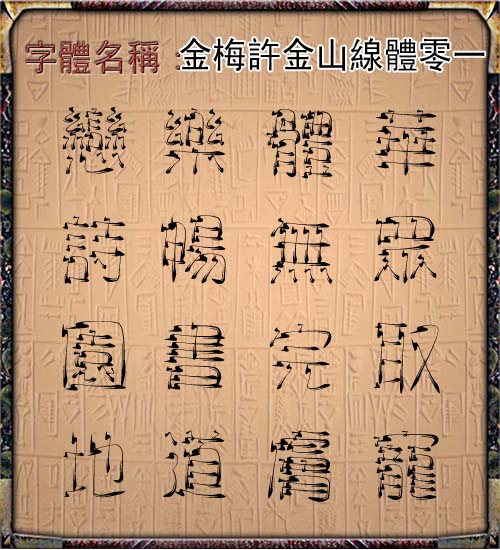 字體名稱：金梅許金山線體零一
華眾取寵
體無完膚
樂暢書道
戀詩園地